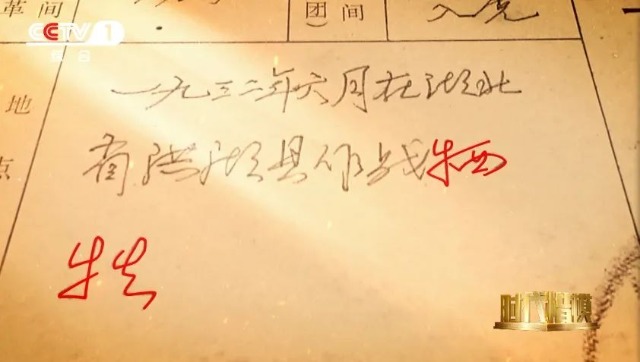 CCTV 1
综合
革间
团)间
地
点
一九三二年六月在湖北
省洪湖县作战牺
牲
时代楷模